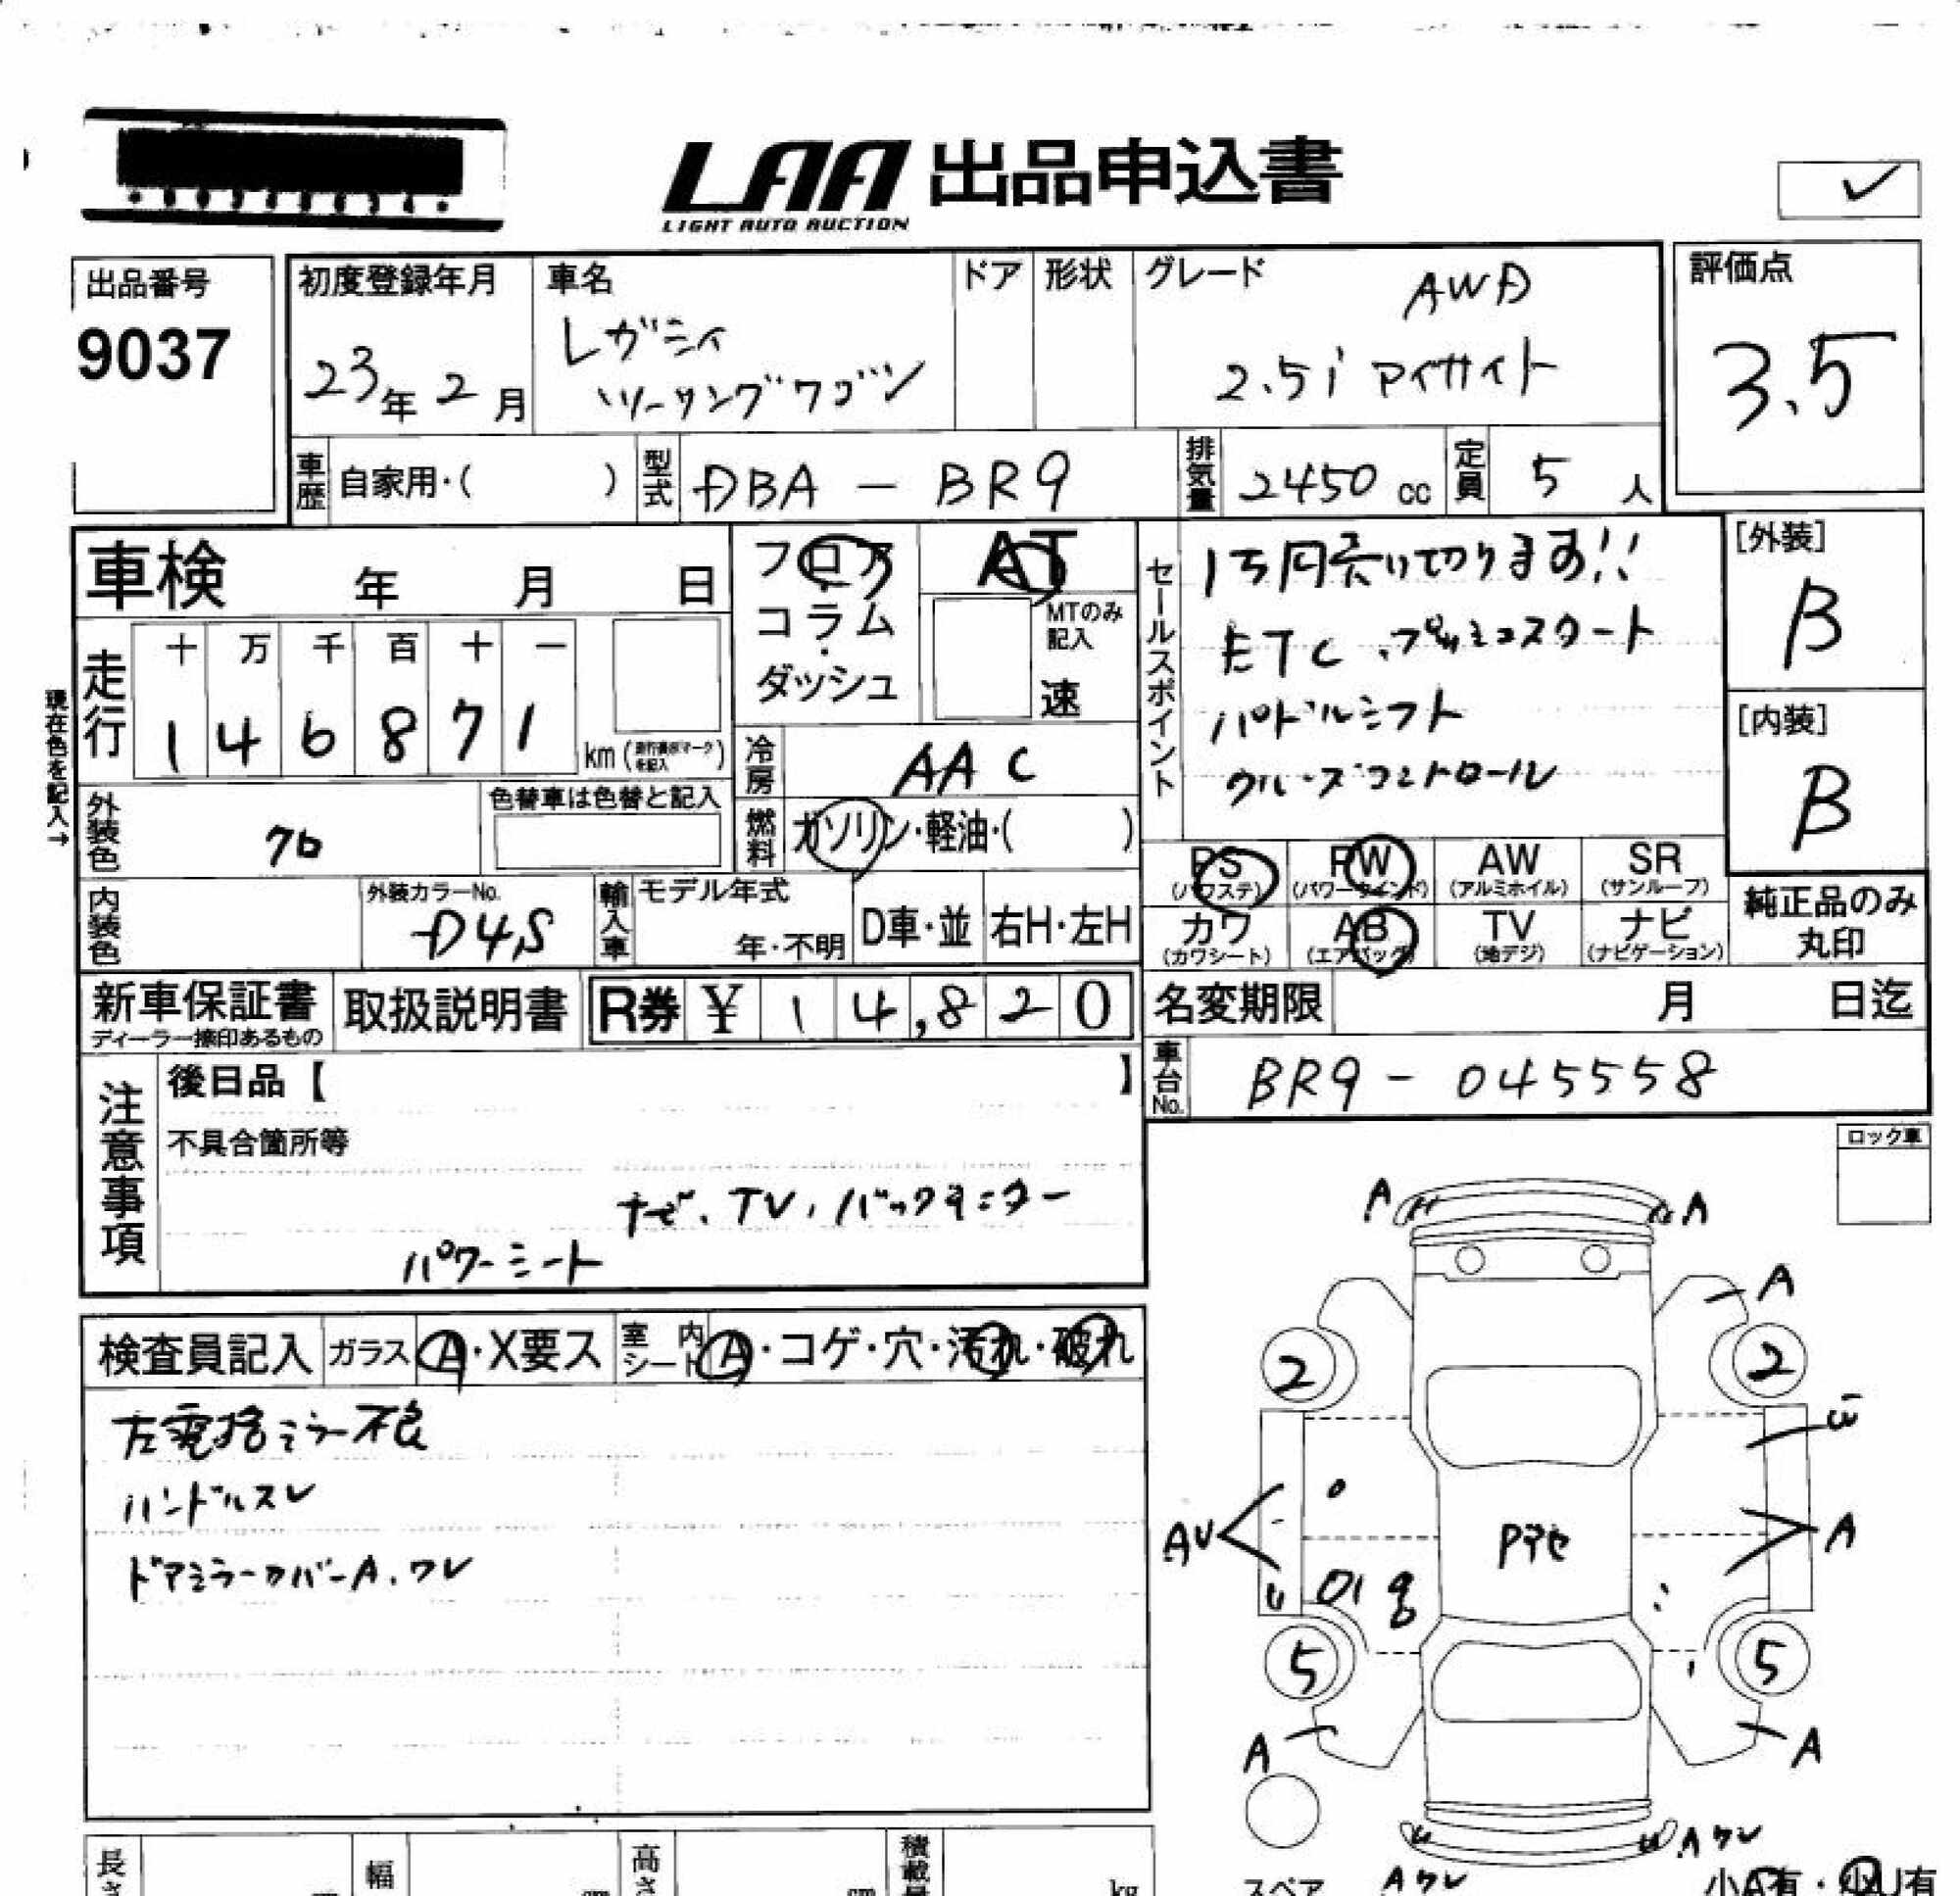 LAA 出品申込書
LIGHT AUTO AUCTION
出品番号
9037
初度登録年月
23年 2月
車名
レガシィ
ツーリングワゴン
ドア
形状
グレード
AWD
2.5i アイサイト
評価点
3.5
車歴
自家用・( )
型式
DBA - BR9
排気量
2450 cc
定員
5 人
車検 年 月 日
フロア
・
コラム
・
ダッシュ
AT
MTのみ
記入
速
セールスポイント
1万円売り切ります!!
ETC、プッシュスタート
パドルシフト
クルーズコントロール
[外装]
B
[内装]
B
現在色を記入→
走行
十 万 千 百 十 一
1 4 6 8 7 1
km (走行表示マークを記入)
冷房
AAC
外装色
クロ
色替車は色替と記入
燃料
ガソリン・軽油・( )
PS
(パワステ)
PW
(パワーウインド)
AW
(アルミホイル)
SR
(サンルーフ)
内装色
外装カラーNo.
D4S
輸入車
モデル年式
年・不明
D車・並
右H・左H
カワ
(カワシート)
AB
(エアバッグ)
TV
(地デジ)
ナビ
(ナビゲーション)
純正品のみ
丸印
新車保証書
ディーラー捺印あるもの
取扱説明書
R券 ¥ 1 4,8 2 0
名変期限 月 日迄
車台No.
BR9 - 045558
注意事項
後日品【 】
不具合箇所等
ナビ、TV、バックモニター
パワーシート
ロック車
検査員記入
ガラス
A・X要ス
室内
シート
A・コゲ・穴・汚れ・破れ
左電格ミラー不良
ハンドルスレ
ドアミラーカバーA、ワレ
A
A
A
2
2
AU
Pアセ
A
5
5
A
A
Aワレ
Aワレ
スペア
長さ
幅
cm
高さ
cm
積載量
kg